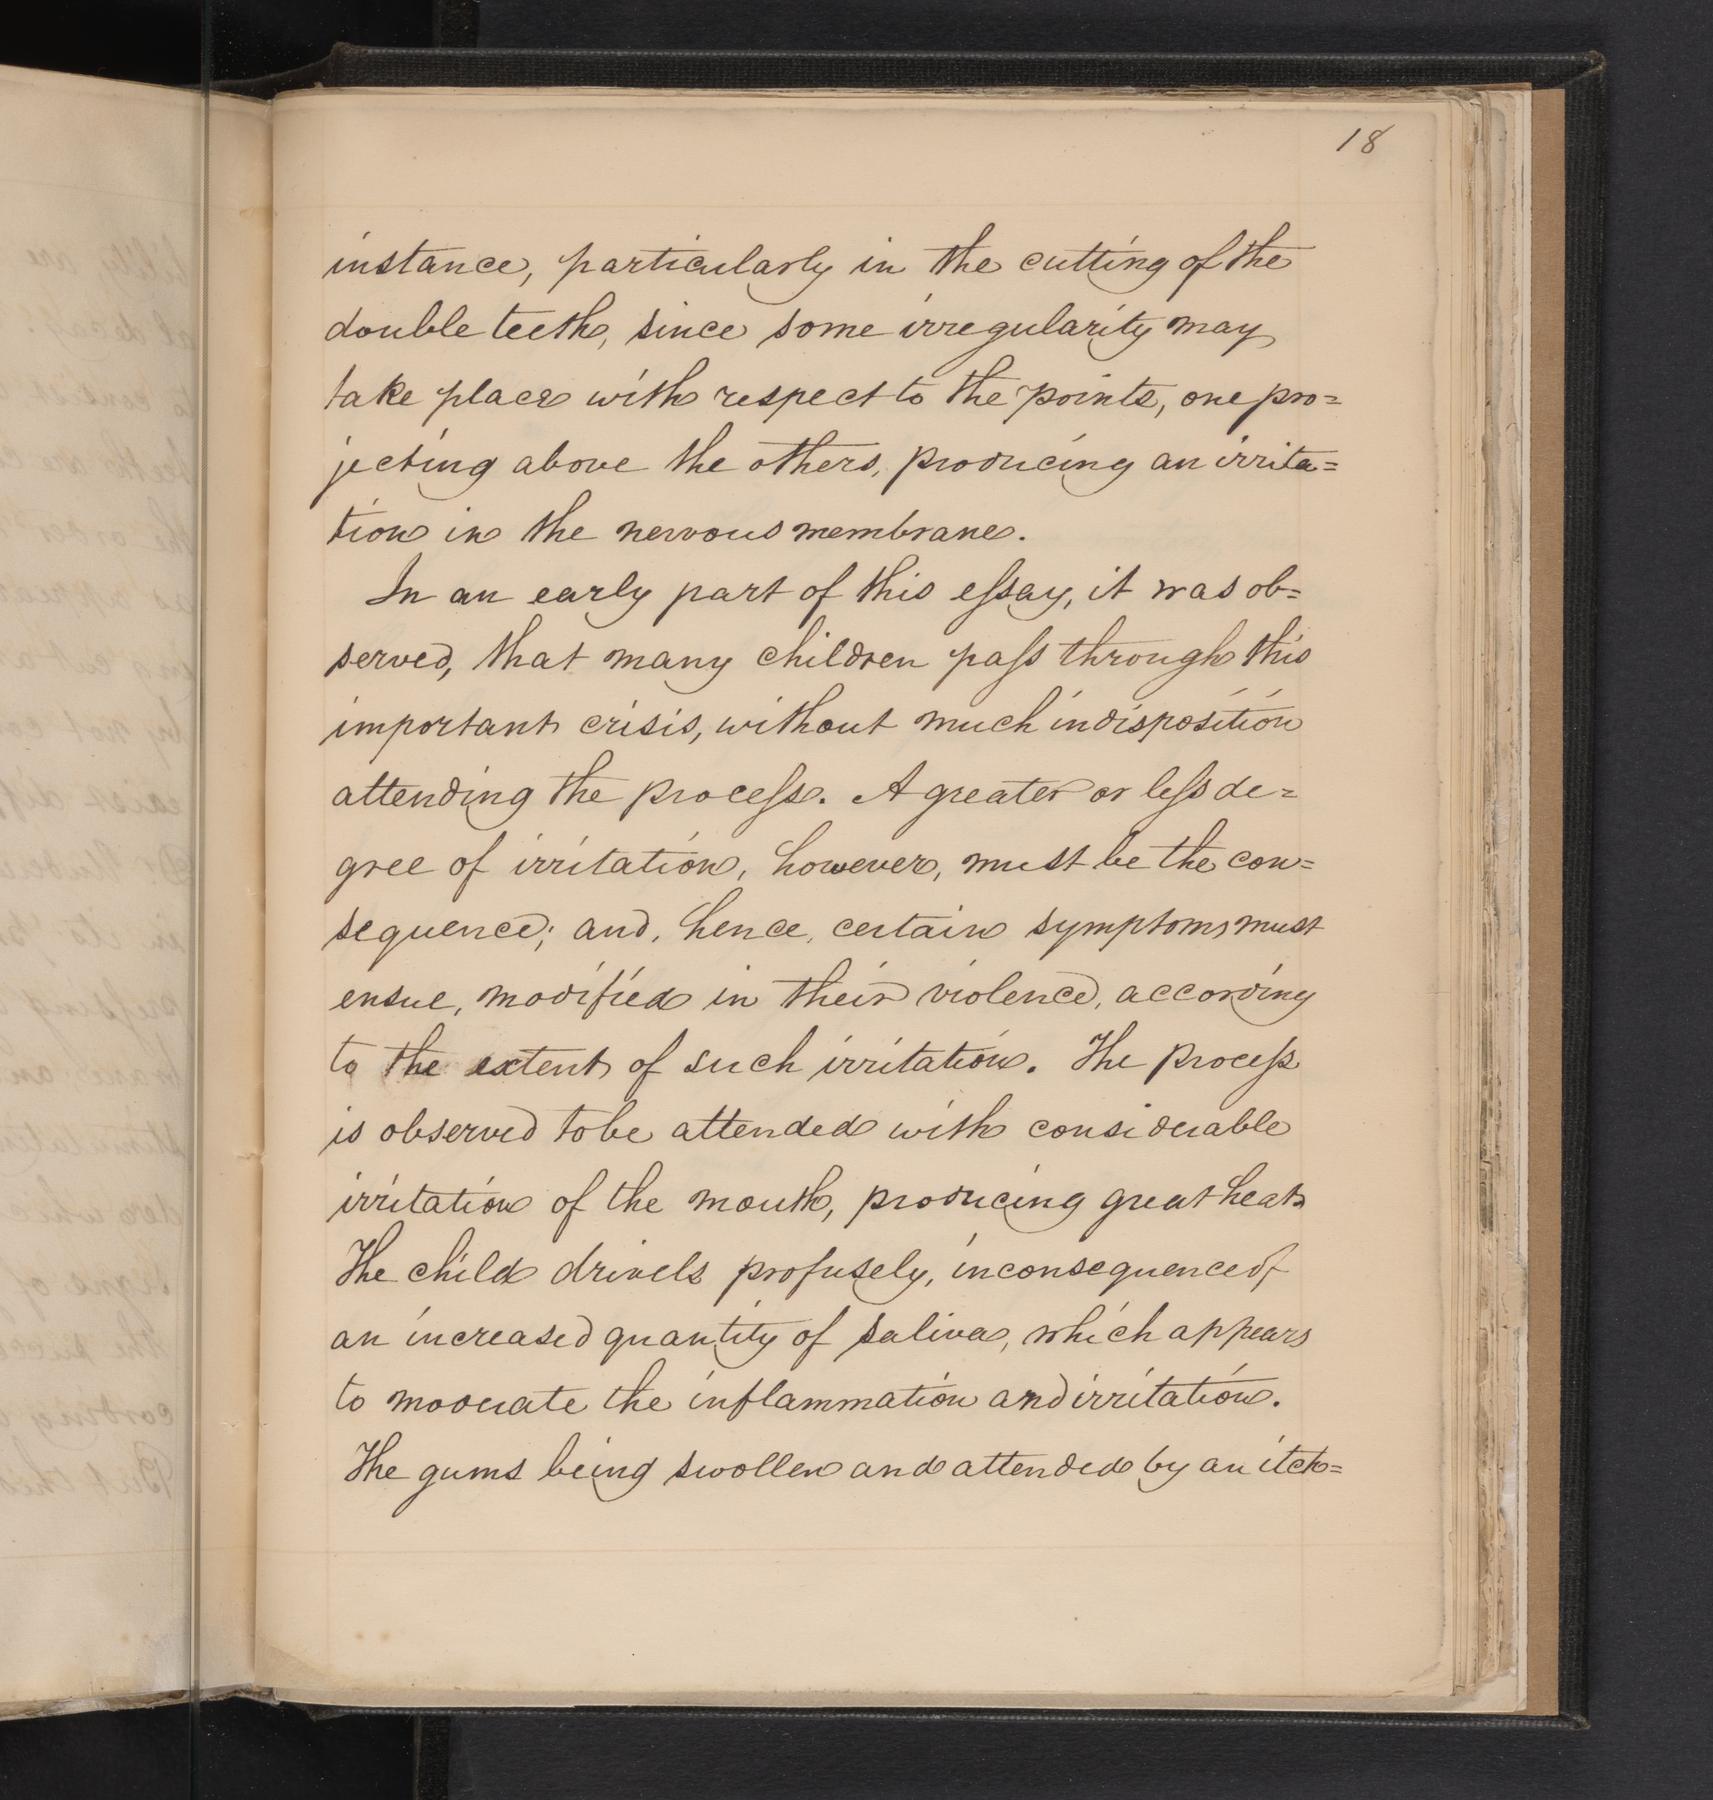 18
instance, particularly in the cutting of the
double teeth, since some irregularity may
take place with respect to the points, one pro=
jecting above the others, producing an irrita=
tion in the nervous membrane.
In an early part of this eſsay, it was ob=
served, that many children paſs through this
important crisis, without much indisposition
attending the proceſs. A greater or leſs de=
gree of irritation, however, must be the con=
sequence; and, hence, certain symptoms must
ensue, modified in their violence, according
to the extent of such irritation. The proceſs
is observed to be attended with considerable
irritation of the mouth, producing great heat
The child drivels profusely, in consequence of
an increased quantity of saliva, which appears
to moderate the inflammation and irritation.
The gums being swollen and attended by an itch=